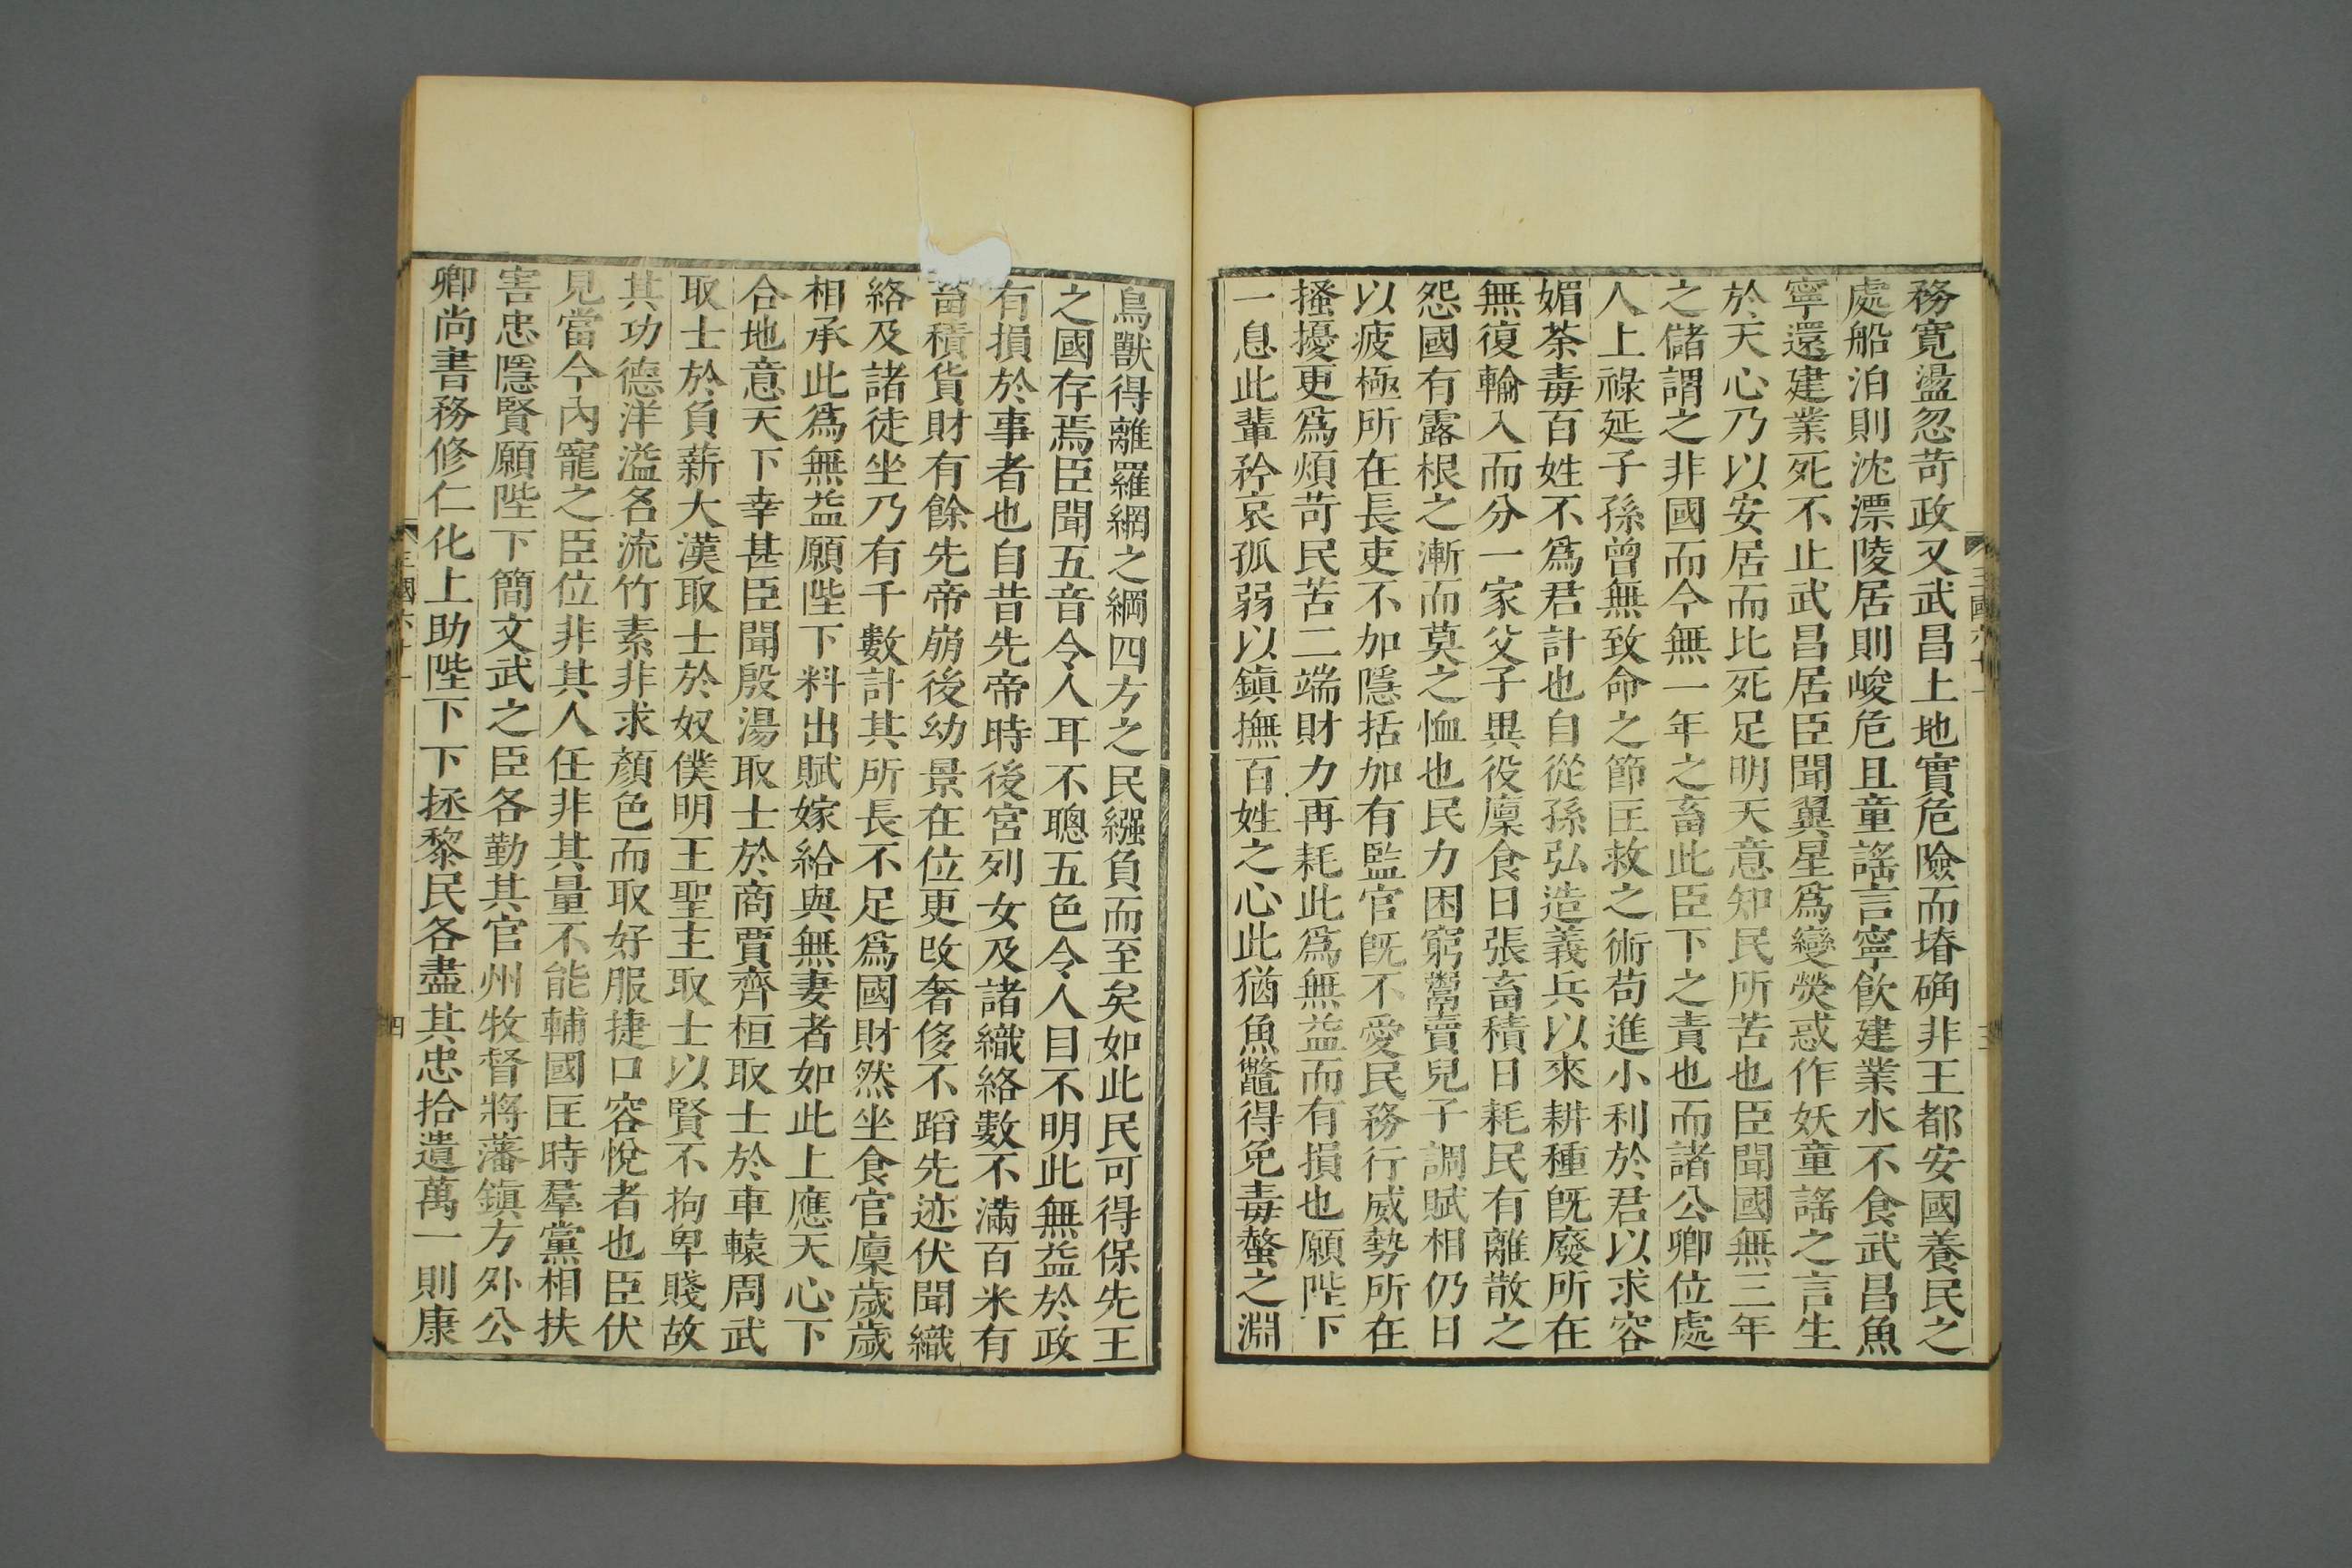 務寬盪忽苛政又武昌土地實危險而塉确非王都安國養民之
處船泊則沈漂陵居則峻危且童謠言寧飲建業水不食武昌魚
寧還建業死不止武昌居臣聞翼星爲變熒惑作妖童謠之言生
於天心乃以安居而比死足明天意知民所苦也臣聞國無三年
之儲謂之非國而今無一年之畜此臣下之責也而諸公卿位處
人上祿延子孫曾無致命之節匡救之術苟進小利於君以求容
媚荼毒百姓不爲君計也自從孫弘造義兵以來耕種旣廢所在
無復輸入而分一家父子異役廩食日張畜積日耗民有離散之
怨國有露根之漸而莫之恤也民力困窮鬻賣兒子調賦相仍日
以疲極所在長吏不加隱括加有監官旣不愛民務行威勢所在
搔擾更爲煩苛民苦二端財力再耗此爲無益而有損也願陛下
一息此輩矜哀孤弱以鎭撫百姓之心此猶魚鼈得免毒螫之淵
三國六十一
三
鳥獸得離羅網之綱四方之民繈負而至矣如此民可得保先王
之國存焉臣聞五音令人耳不聰五色令人目不明此無益於政
有損於事者也自昔先帝時後宮列女及諸織絡數不滿百米有
畜積貨財有餘先帝崩後幼景在位更改奢侈不蹈先迹伏聞織
絡及諸徒坐乃有千數計其所長不足爲國財然坐食官廩歲歲
相承此爲無益願陛下料出賦嫁給與無妻者如此上應天心下
合地意天下幸甚臣聞殷湯取士於商賈齊桓取士於車轅周武
取士於負薪大漢取士於奴僕明王聖主取士以賢不拘卑賤故
其功德洋溢名流竹素非求顏色而取好服捷口容悅者也臣伏
見當今內寵之臣位非其人任非其量不能輔國匡時羣黨相扶
害忠隱賢願陛下簡文武之臣各勤其官州牧督將藩鎭方外公
卿尚書務修仁化上助陛下下拯黎民各盡其忠拾遺萬一則康
三國六十一
四